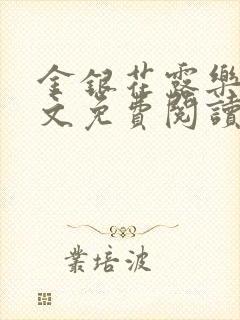 金銀花露樂
文免費閱讀
業培波